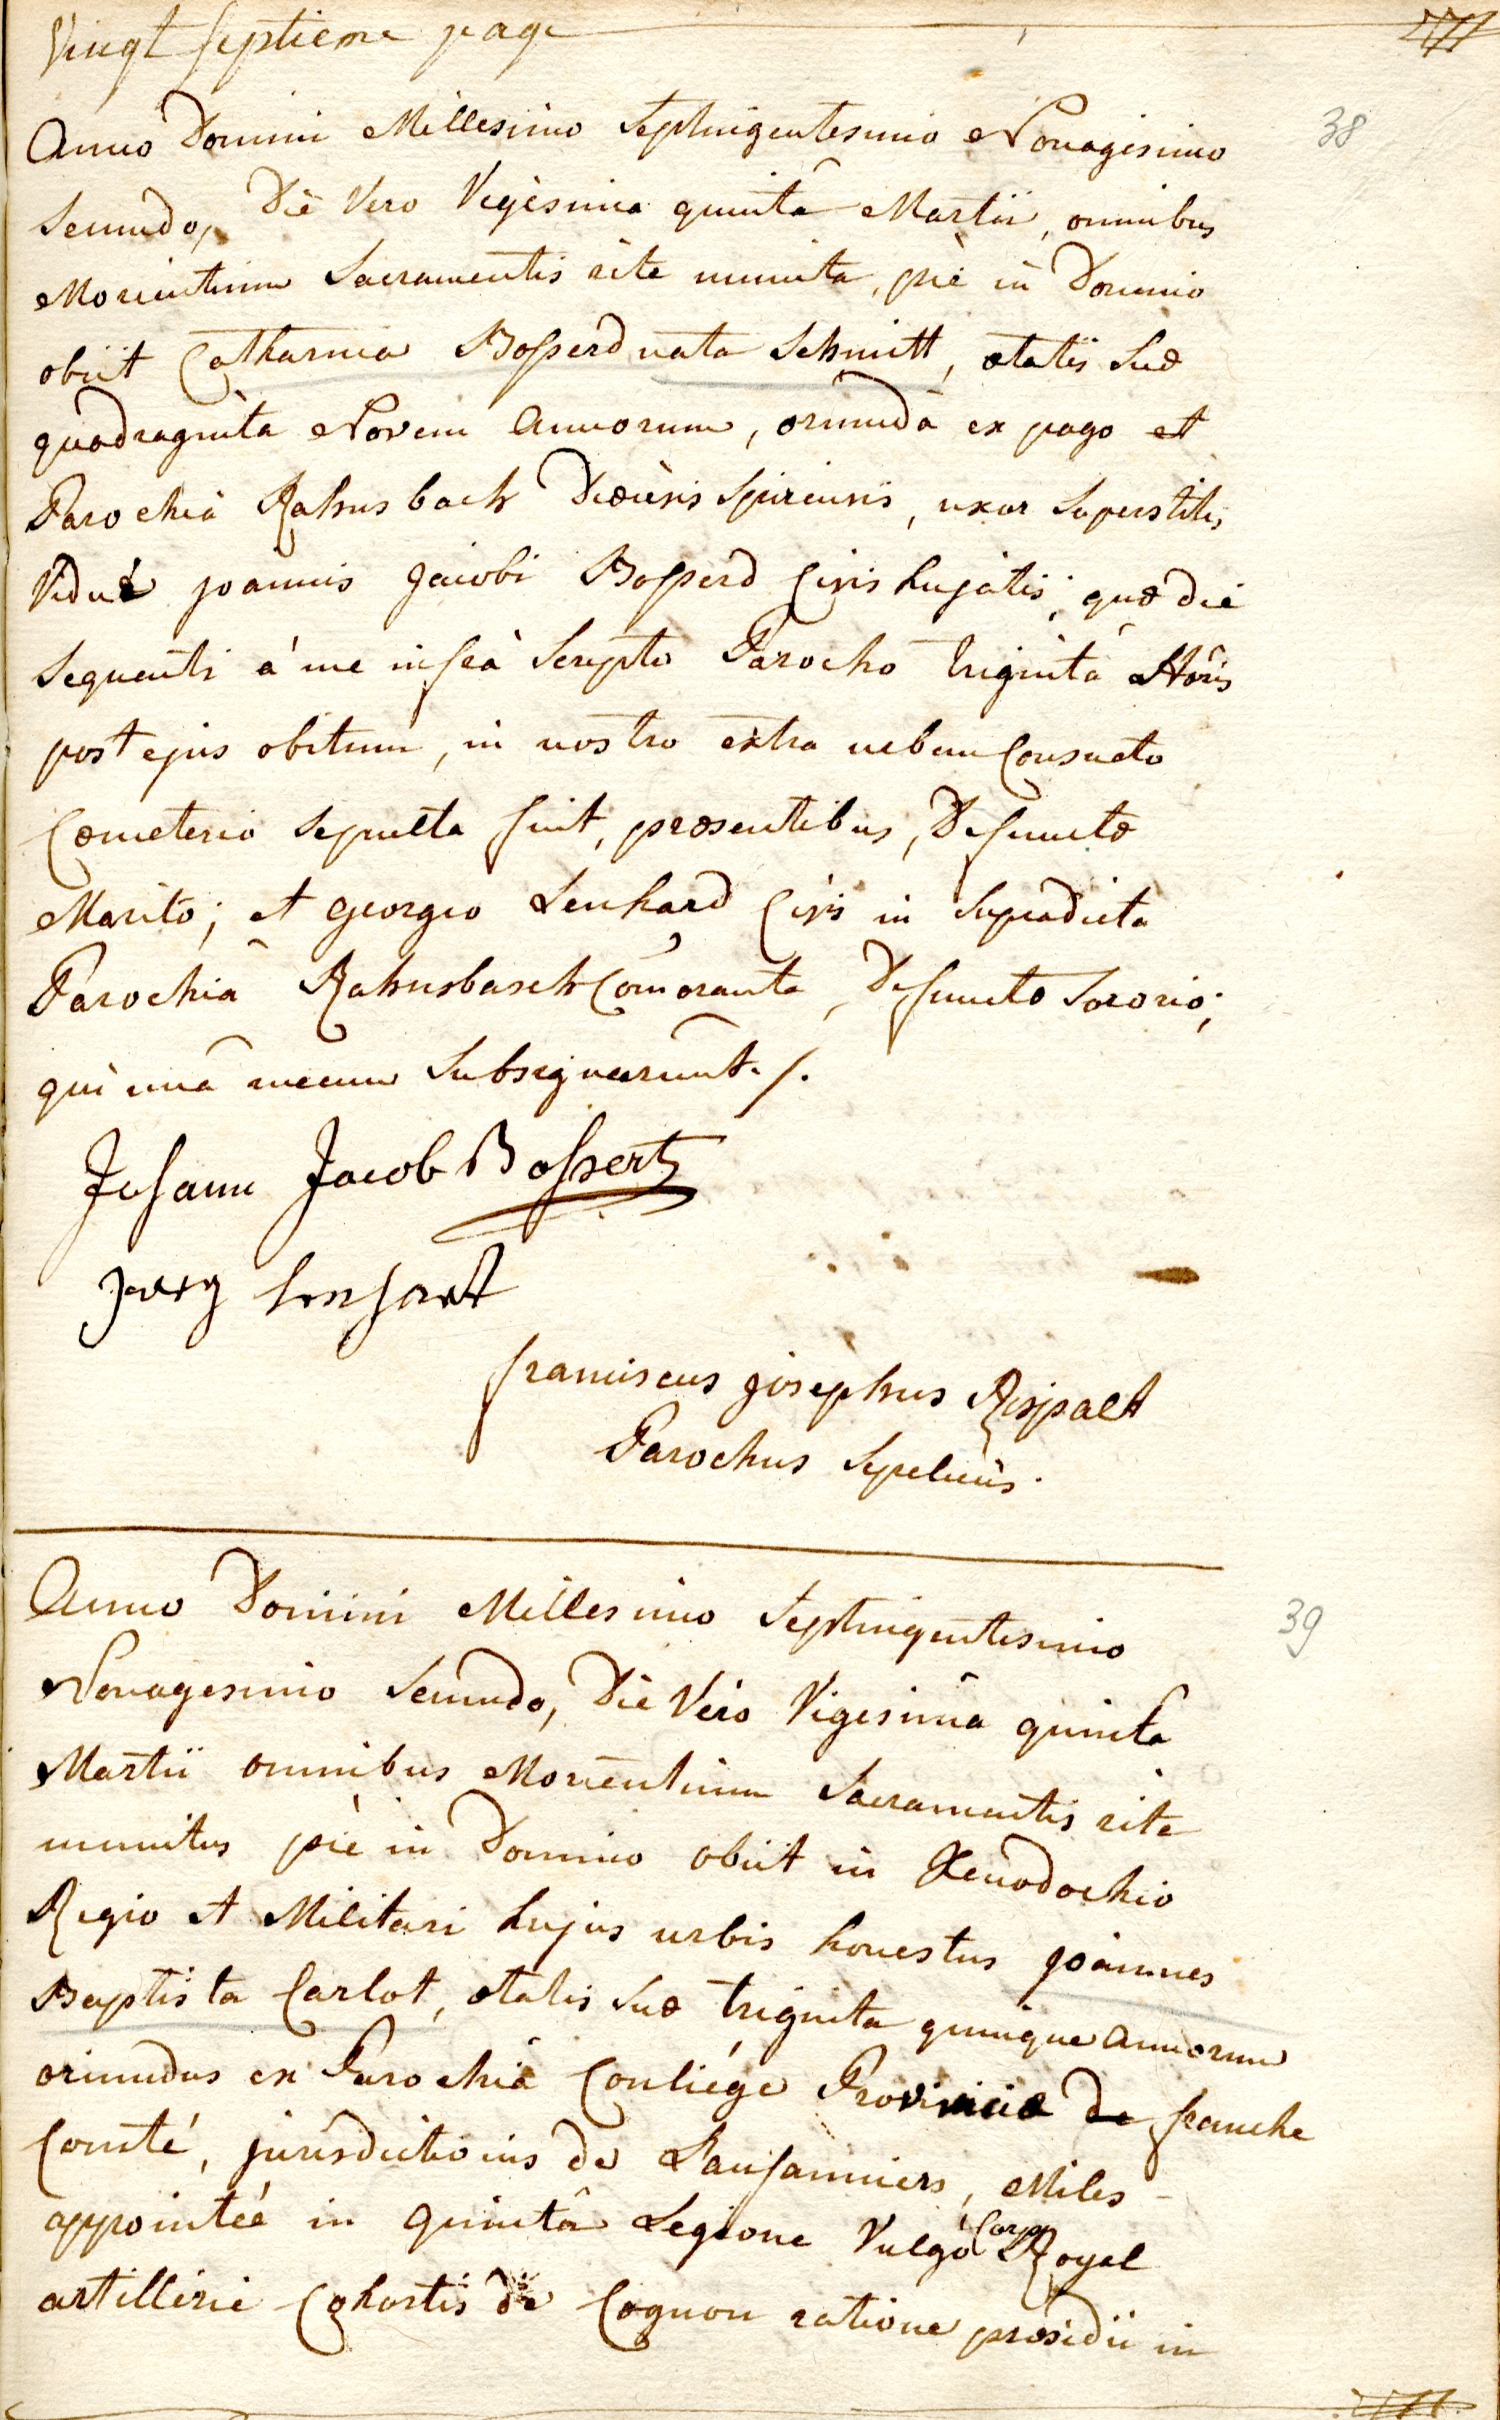 Vingt septieme page
38
Anno Domini Millesimo Septingentesimo Nonagesimo
Secundo, Die Vero Vigesima quinta Martii, omnibus
Morientium Sacramentis rite munita, piè in Domino
obiit Catharina Bosserd nata Schmitt, ætatis suæ
quadraginta Novem Annorum, oriunda ex pago et
Parochiâ Rahnsbach Diœcesis Spirensis, uxor Superstitis
Vidui joannis Jacobi Bosserd Civis hujatis; quæ die
sequenti à me infrà Scripto Parocho triginta Horis
post ejus obitum, in nostro extra urbem Consueto
Cœmeterio sepulta fuit, præsentibus, Defunctæ
Marito; et georgio Lenhard Civis in supradicta
Parochiâ Rahnsbasch Com̄orante, Defunctæ Sororio;
qui unâ mecum Subsignarunt./.
Johann Jacob Bossert
Jerg Lenhart
franciscus josephus Rispalt
Parochus Sepeliens.
39
Anno Domini Millesimo Septingentesimo
Nonagesimo Secundo, Die Vero Vigesima quinta
Martii omnibus Morientium Sacramentis rite
munitus piè in Domino obiit in Xenodochio
Regio et Militari hujus urbis honestus joannes
Baptista Carlot, ætatis suæ triginta quinque annorum
oriundus ex Parochiâ Conliége Provinciæ de franche
Comté, jurisdictionis de Lausanniers, Miles
appointéé in Quintâ Legione Vulgo Corps Royal
artillerie Cohortis de Cognon ratione præsidii in